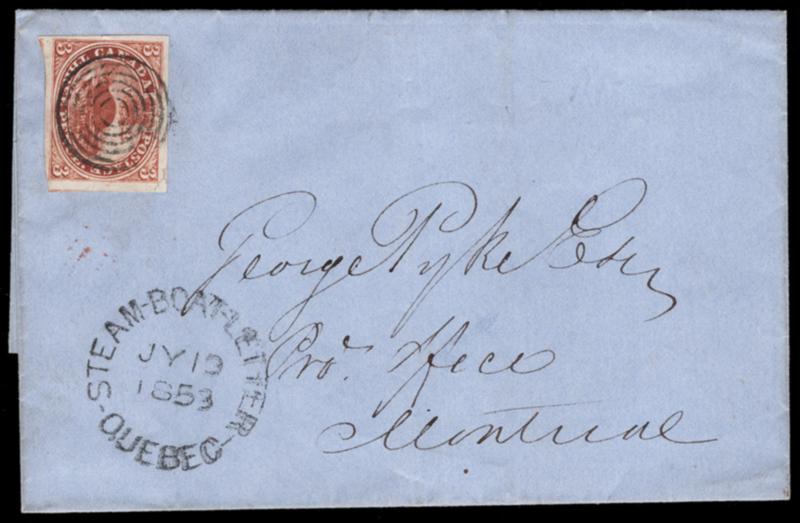 CANADA
POSTAGE
3
3
3
3
George Pyke Esq
Pro. Office
Montreal
STEAM-BOAT-LETTER
JY 19
1853
QUEBEC